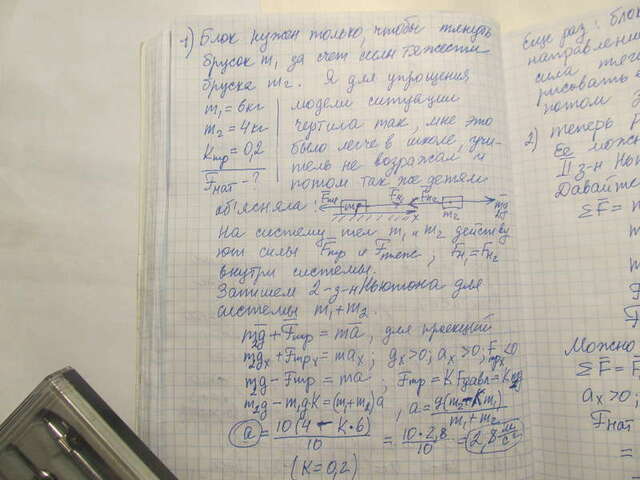 1) Блок нужен только, чтобы тянуть
брусок m₁ за счет силы тяжести
бруска m₂. Я для упрощения
m₁ = 6кг | модели ситуации
m₂ = 4кг | чертила так, мне это
Kтр = 0,2 | было легче в школе, учи-
Fнат - ? | тель не возражал и
потом так же детям
объясняла: Fтр m₁ Fн₁ Fн₂ m₂ m₂g
x
На систему тел m₁ и m₂ действу
ют силы Fтр и Fтяж, Fн₁ = Fн₂
внутри системы.
Запишем 2-з-н Ньютона для
системы m₁ + m₂.
m₂g + Fтр = ma, для проекций
m₂gx + Fтрx = max; gx > 0; ax > 0; Fтрx < 0
m₂g - Fтр = ma; Fтр = K Fдавл = K
m₂g - m₁gK = (m₁ + m₂)a, a = g(m₂ - Km₁) / m₁ + m₂
a = 10(4 - K·6) / 10 = 10·2,8 / 10 = 2,8 м/с²
(K = 0,2)
Еще раз: блок
направлени
сила тяг
рисовать
потом
2) теперь
Ее можн
II з-н Нью
Давайте
ΣF =
Можно
ΣF = F
ax > 0;
Fнат
=
=